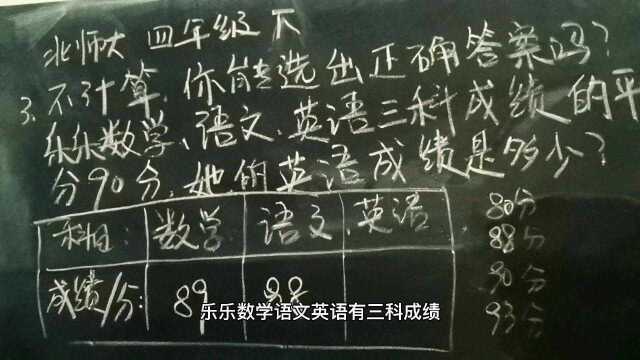 北师大 四年级下
3.不计算,你能选出正确答案吗?
乐乐数学、语文、英语三科成绩的平
分90分,她的英语成绩是多少?
科目: 数学 语文 英语
成绩/分: 89 88
80分
88分
90分
93分
乐乐数学语文英语有三科成绩